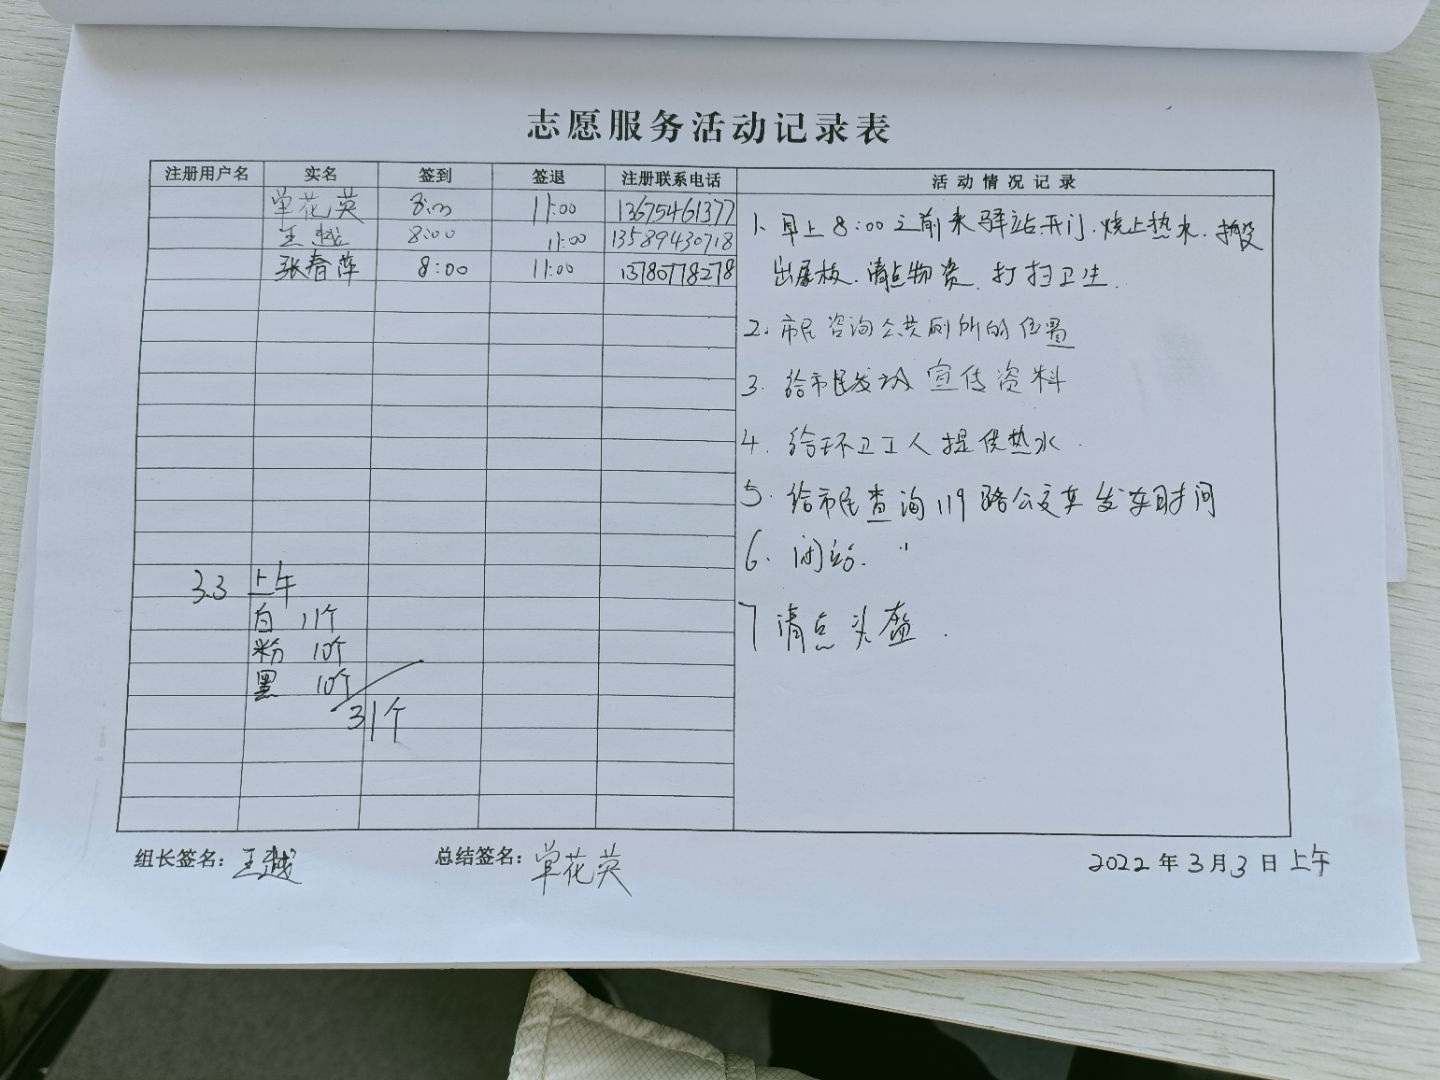 志愿服务活动记录表
注册用户名 实名 签到 签退 注册联系电话 活动情况记录
单花英 8:00 11:00 13675461377
王越 8:00 11:00 13589430718
张春萍 8:00 11:00 13780778278
1. 早上8:00之前来驿站开门.烧上热水.搬
出展板.清点物资.打扫卫生.
2. 市民咨询公共厕所的位置
3. 给市民发放宣传资料
4. 给环卫工人提供热水.
5. 给市民查询119路公交车发车时间
6. 闭站.
7 清点头盔.
3.3 上午
白 11个
粉 10个
黑 10个
31个
组长签名:王越 总结签名:单花英 2022年3月3日上午